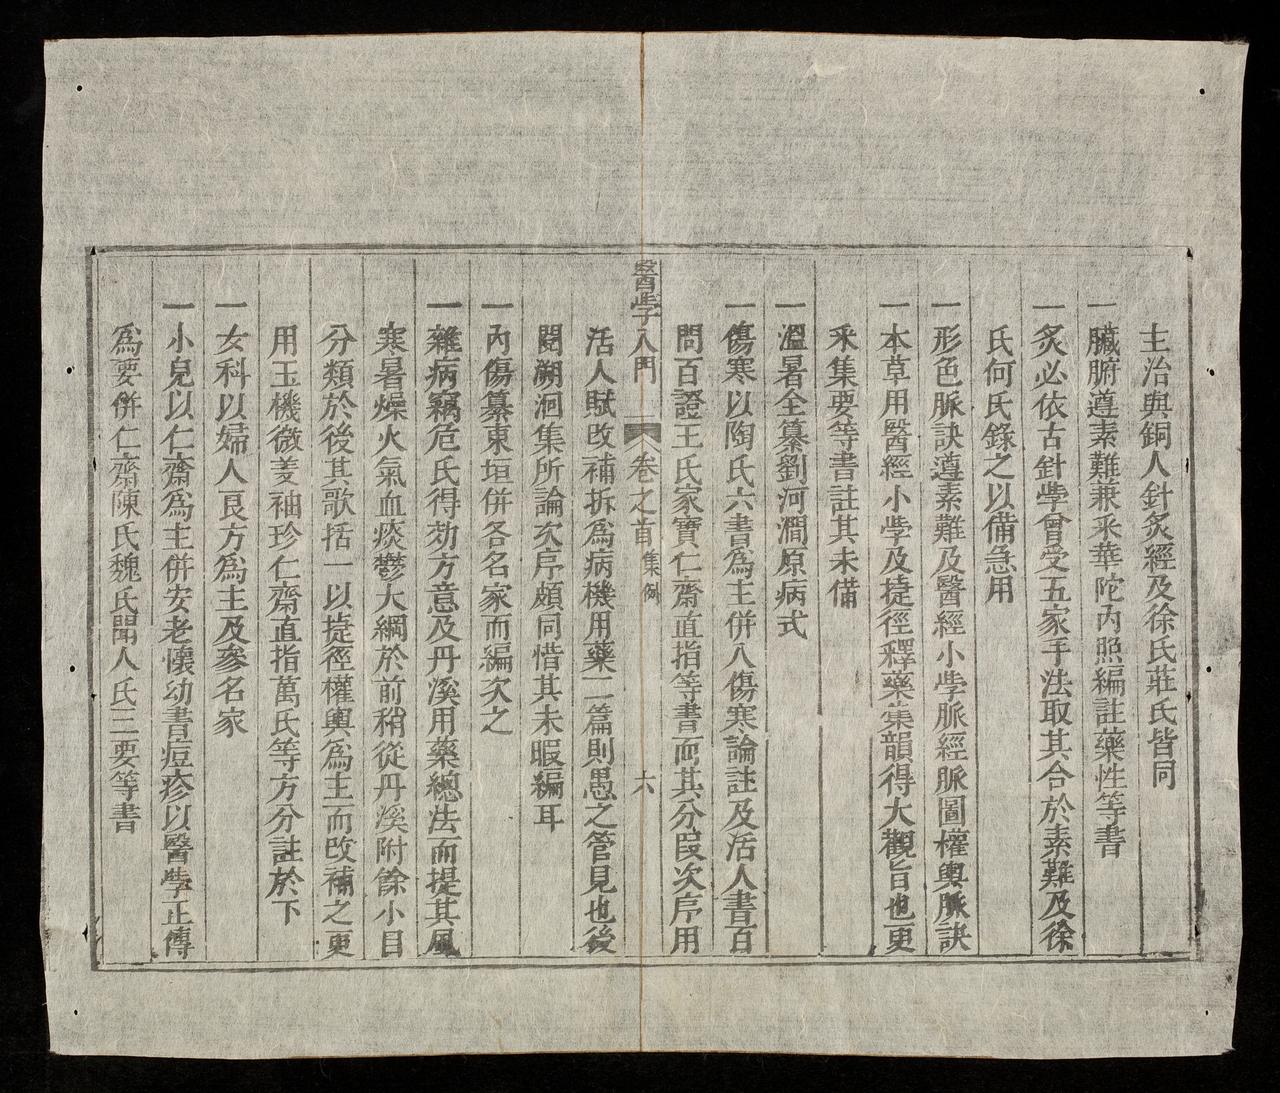 主治與銅人針炙經及徐氏莊氏皆同
一臟腑遵素難兼采華陀內照編註藥性等書
一炙必依古針學曾受五家手法取其合於素難及徐
氏何氏錄之以備急用
一形色脈訣遵素難及醫經小學脈經脈圖權輿脈訣
一本草用醫經小學及捷徑釋藥集韻得大觀旨也更
采集要等書註其未備
一溫暑全纂劉河澗原病式
一傷寒以陶氏六書為主併入傷寒論註及活人書百
問百證王氏家寶仁齋直指等書而其分段次序用
活人賦改補拆為病機用藥二篇則愚之管見也後
閱溯洄集所論次序頗同惜其未暇編耳
醫學入門 卷之首 集例 六
一內傷纂東垣併各名家而編次之
一雜病竊危氏得効方意及丹溪用藥總法而提其風
寒暑燥火氣血痰鬱大綱於前稍從丹溪附餘小目
分類於後其歌括一以捷徑權輿為主而改補之更
用玉機微姜袖珍仁齋直指萬氏等方分註於下
一女科以婦人良方為主及參名家
一小兒以仁齋為主併安老懷幼書痘疹以醫學正傳
為要併仁齋陳氏魏氏聞人氏三要等書